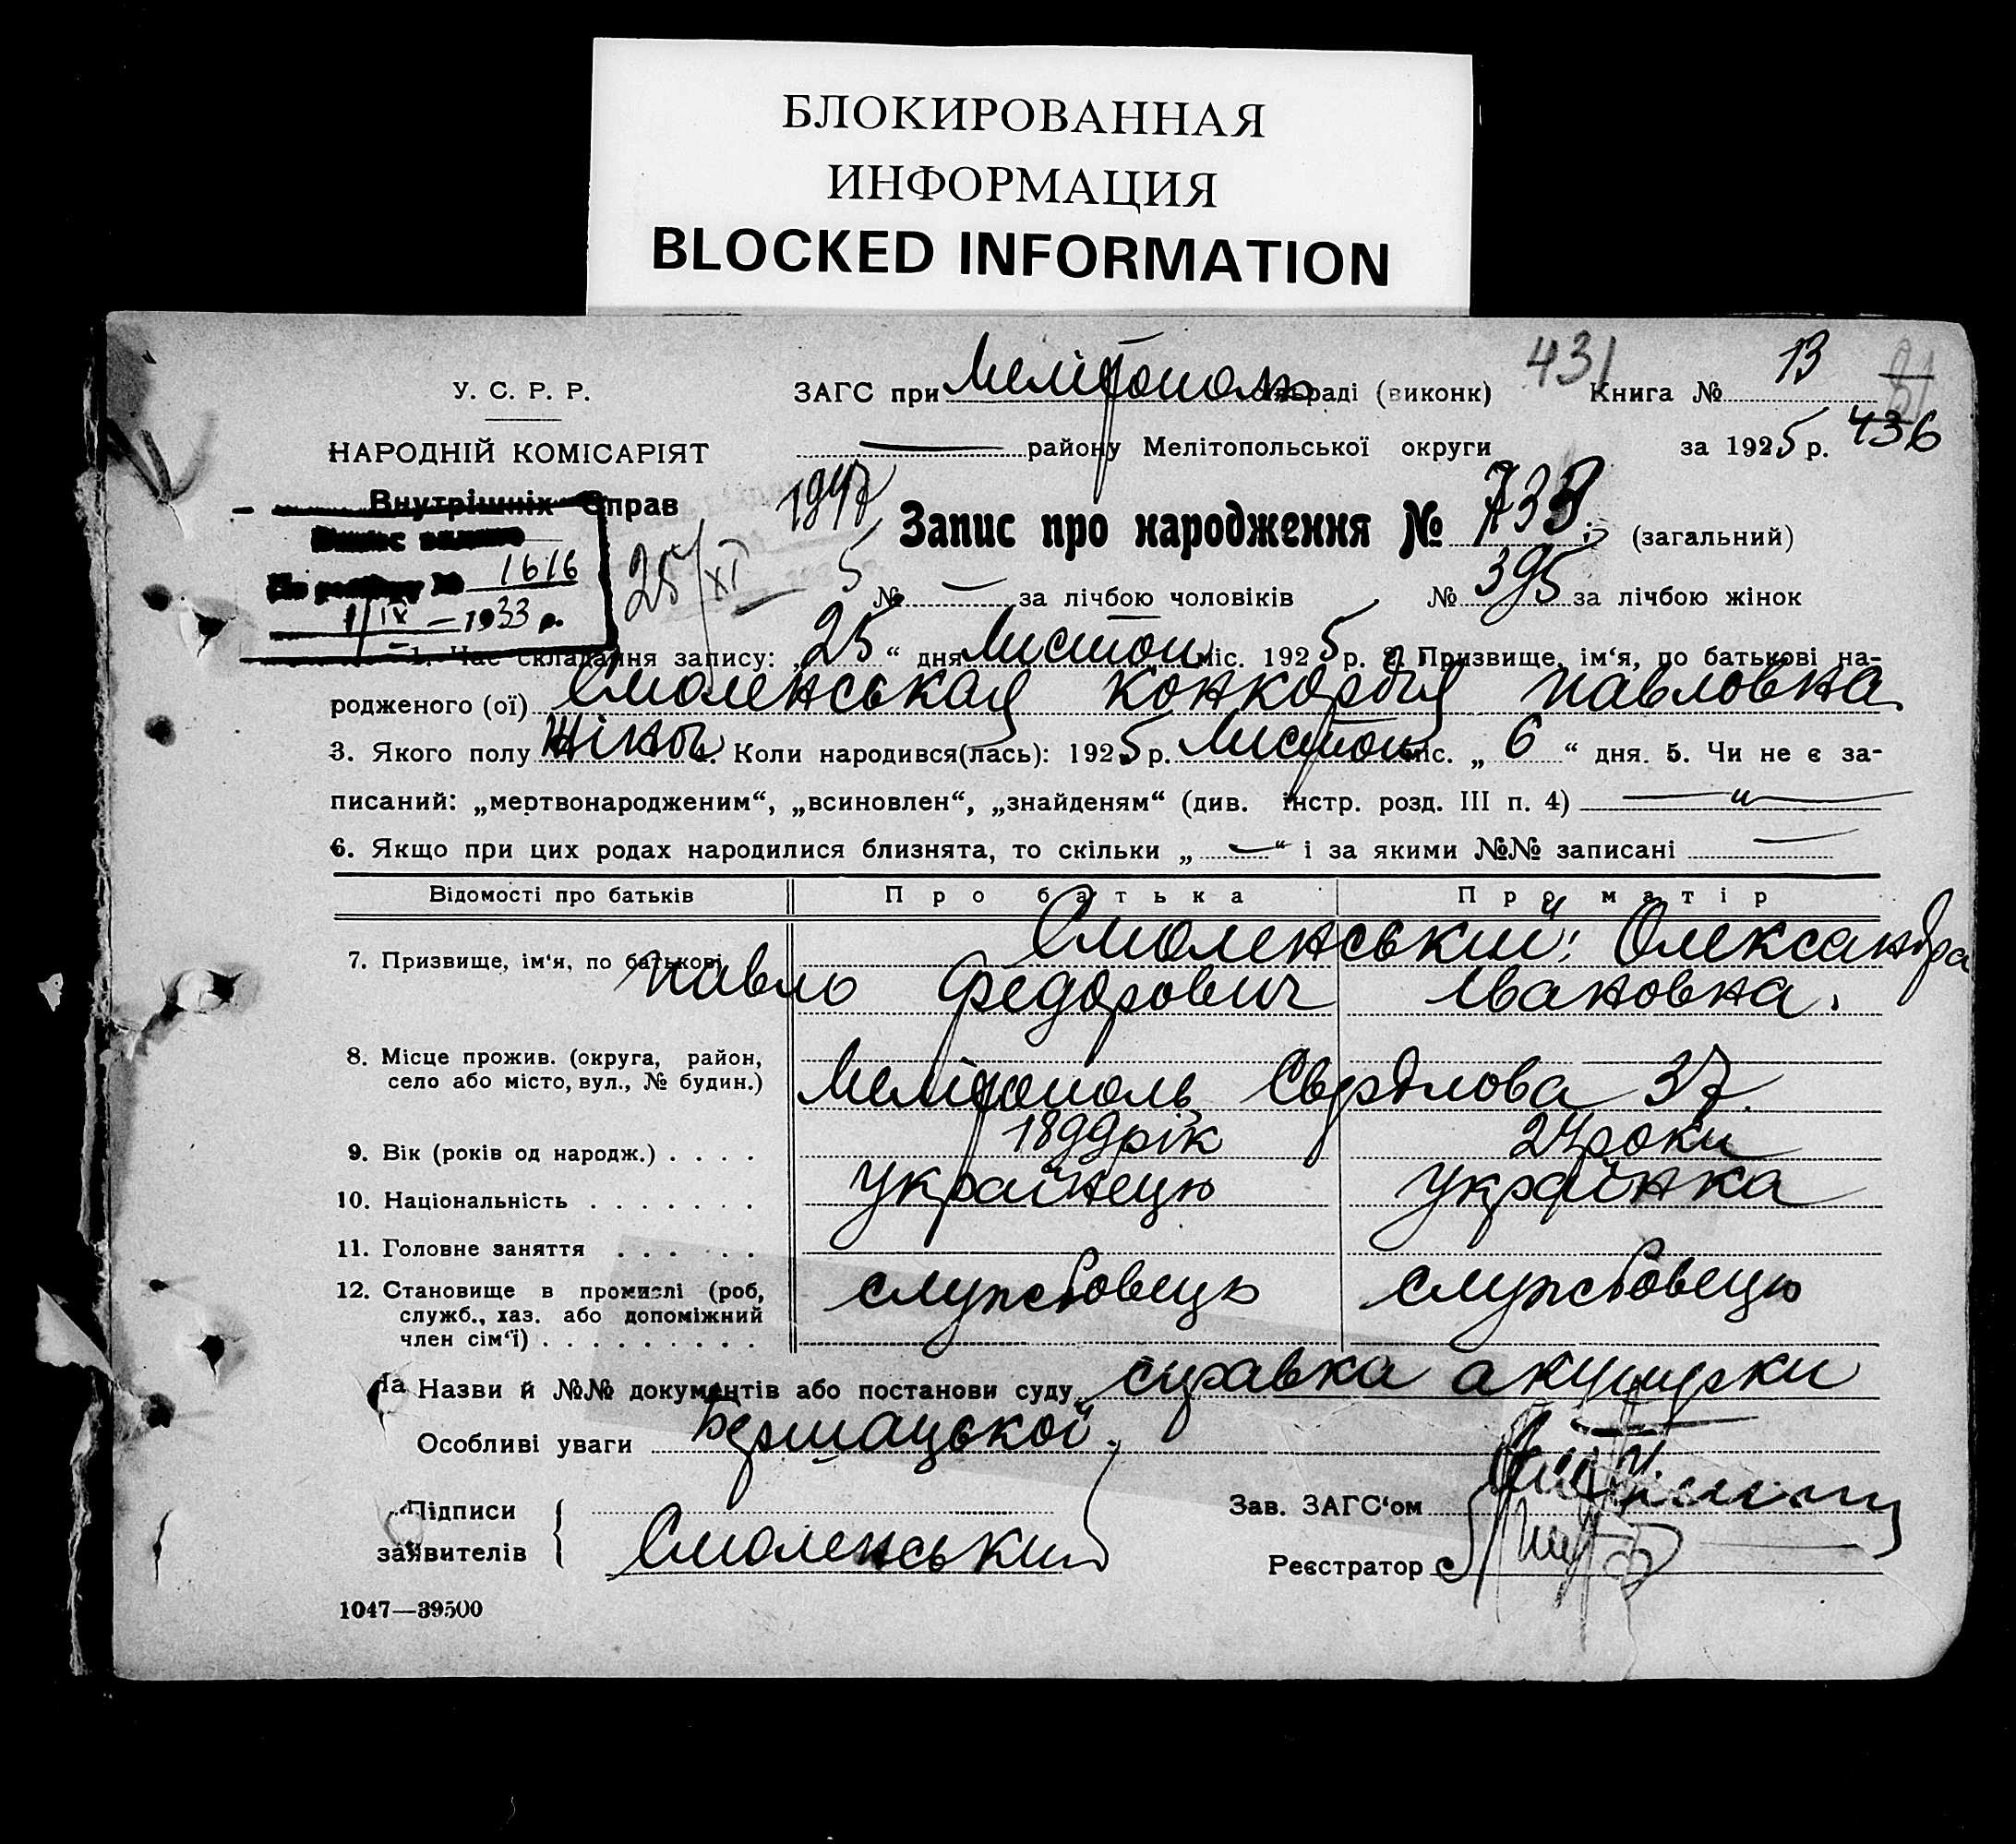 БЛОКИРОВАННАЯ
ИНФОРМАЦИЯ
BLOCKED INFORMATION
У. С. Р. Р.
НАРОДНІЙ КОМІСАРІЯТ
Внутрішніх Справ
1616
1/IX – 1933 р.
ЗАГС при Мелітополь раді (виконк)
431
Книга № 13
436
району Мелітопольської округи
за 1925 р.
25/XI
Запис про народження № 733 (загальний)
№ — за лічбою чоловіків № 395 за лічбою жінок
1. Час складання запису: „ 25 “ дня Листоп міс. 1925 р. 2. Призвище, ім‘я, по батькові на-
родженого (ої) Смоленськая Конкордия Павловна
3. Якого полу жіноч 4. Коли народився(лась): 1925 р. Листоп міс. „ 6 “ дня. 5. Чи не є за-
писаний: „мертвонародженим“, „всиновлен“, „знайденям“ (див. інстр. розд. III п. 4) —„—
6. Якщо при цих родах народилися близнята, то скільки „ — “ і за якими №№ записані —
Відомості про батьків Про батька Про матір
7. Призвище, ім‘я, по батькові Смоленський Олександра
Павло Федорович Івановна.
8. Місце прожив. (округа, район,
село або місто, вул., № будин.) Мелітополь Свердлова 37.
9. Вік (років од народж.) . . . . 1899 рік 24 роки
10. Національність . . . . . . . Українець Українка
11. Головне заняття . . . . . .
12. Становище в промислі (роб, службовець службовець
служб., хаз. або допоміжний
член сім‘ї) . . . . . . . . .
Назви й №№ документів або постанови суду справка акушурки
Особливі уваги Бершацької.
Підписи
заявителів Смоленський
Зав. ЗАГС‘ом
Реєстратор
1047—39500